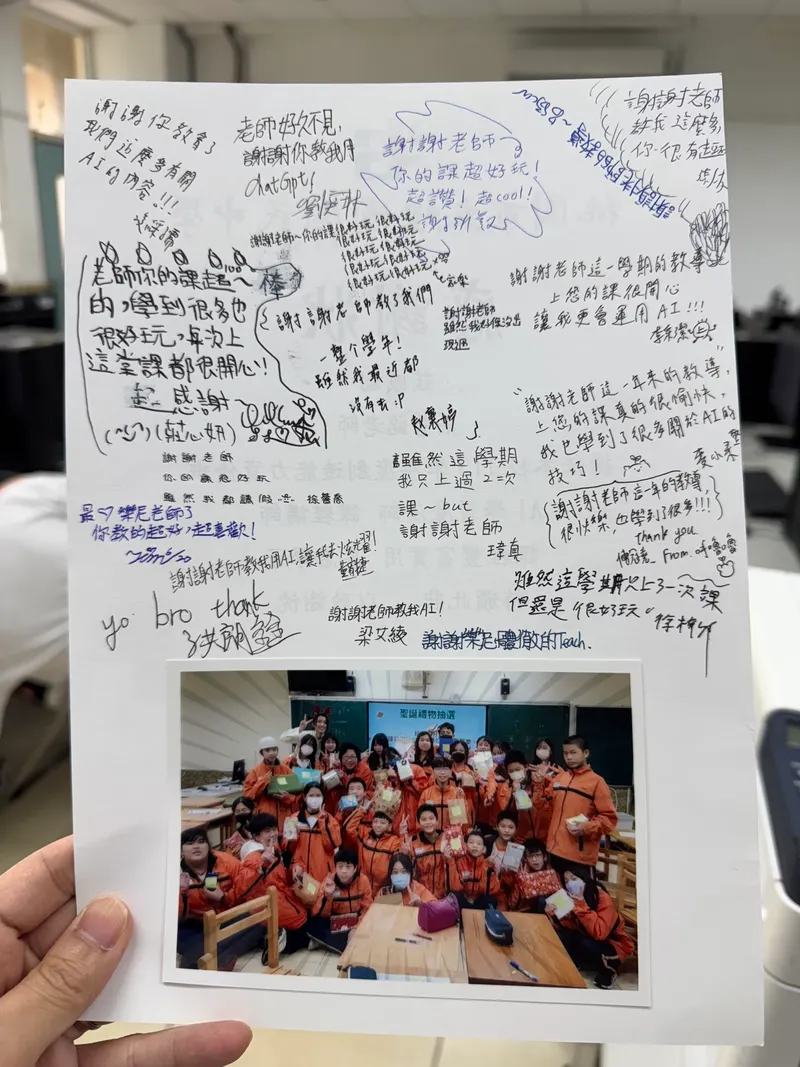 謝謝你教會了
我們這麼多有關
AI的內容!!!
老師好久不見,
謝謝你教我用
ChatGpt!
謝謝老師~
你的課超好玩!
超讚!超cool!
謝謝老師
教我這麼多
你一很有趣
謝謝老師~你的課很好玩很好玩
很好玩很好玩
很好玩很好玩
很好玩很好玩
很好玩很好玩
老師你的課超~棒
的,學到很多也
很好玩,每次上
這堂課都很開心!
超感謝~
100
謝謝老師教了我們
一整個學年!
雖然我最近都
沒有去:P
趙襄婷
謝謝老師
謝謝老師這一學期的教導
上您的課很開心
讓我更會運用AI!!!
謝謝老師這一年來的教導,
上您的課真的很愉快,
我也學到了很多關於AI的
技巧!
謝謝老師
你的課超好玩
雖然我都請假
雖然這學期
我只上過2=次
課~but
謝謝老師
瑋真
謝謝老師這一年的教導,
很快樂,也學到了很多!!!
Thank you
From.
最ㄅ樂尼老師了
你教的超好,超喜歡!
謝謝老師教我用AI,讓我去炫耀!
雖然這學期只上了一次課
但還是很好玩。
yo bro thank
謝謝老師教我AI!
梁艾綾
謝謝樂尼體徹的Teach.
聖誕禮物抽選